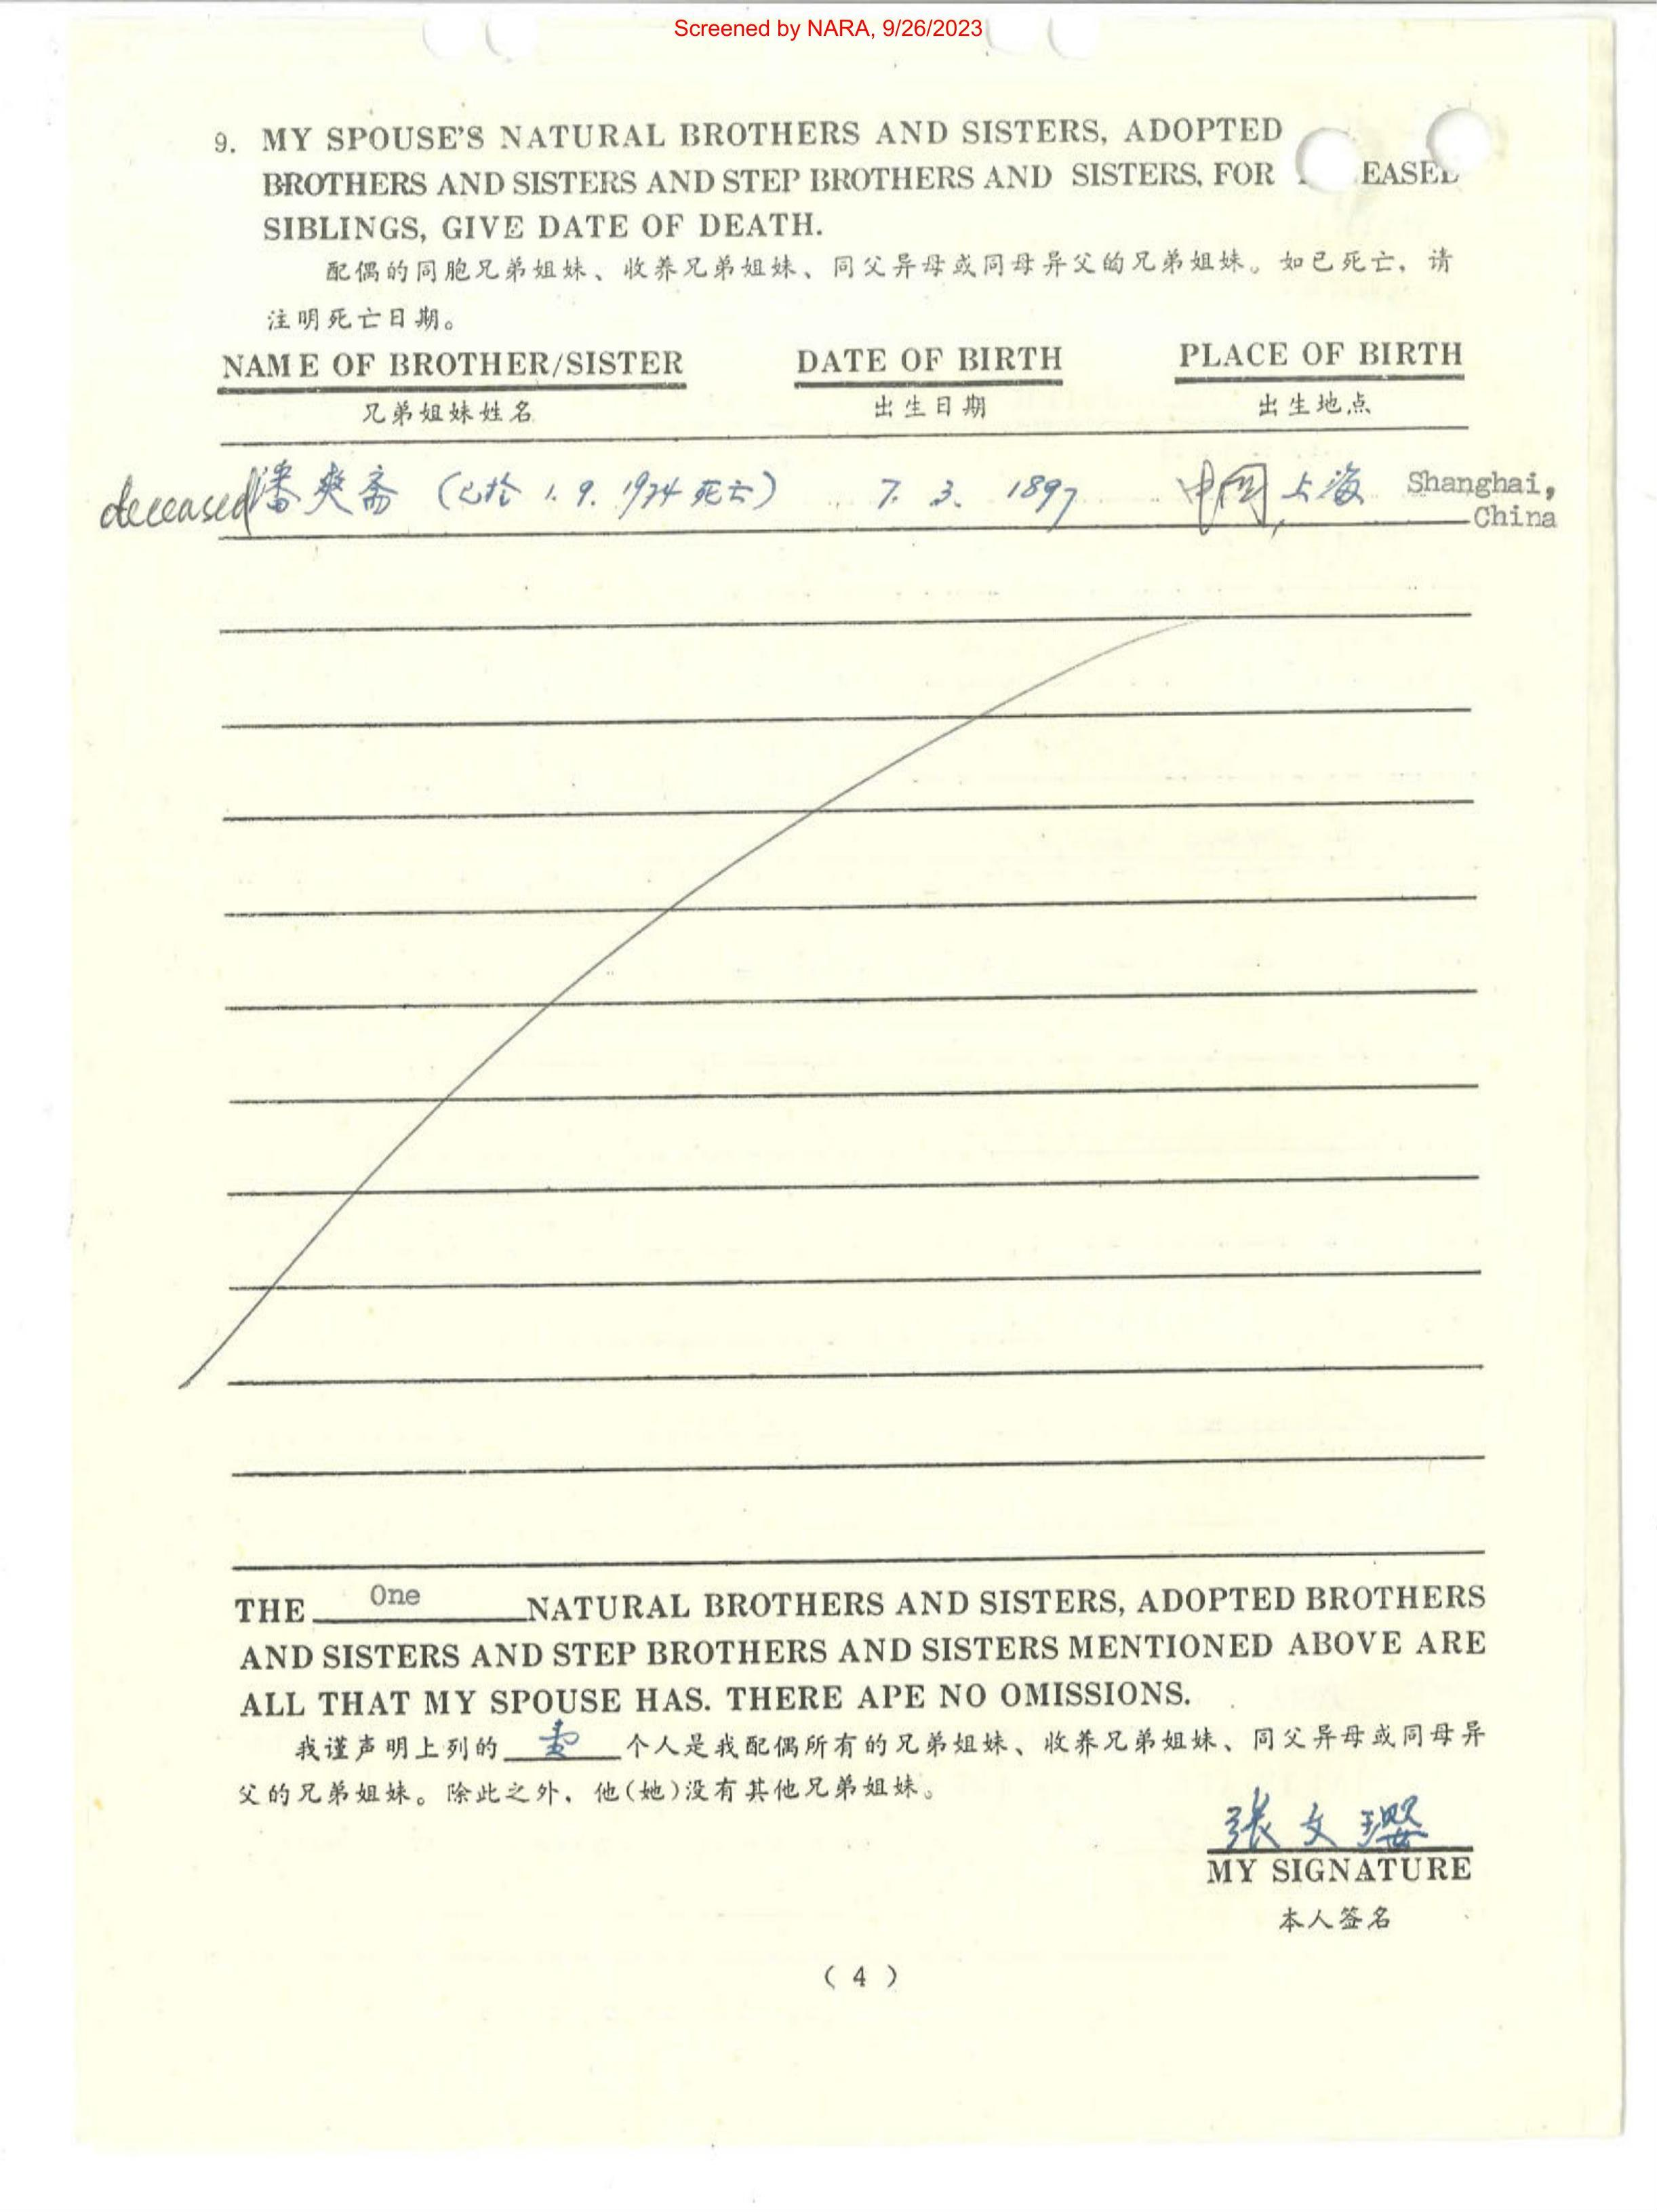 Screened by NARA, 9/26/2023
9. MY SPOUSE'S NATURAL BROTHERS AND SISTERS, ADOPTED
BROTHERS AND SISTERS AND STEP BROTHERS AND SISTERS, FOR EASED
SIBLINGS, GIVE DATE OF DEATH.
配偶的同胞兄弟姐妹、收养兄弟姐妹、同父异母或同母异父的兄弟姐妹。如已死亡，请
注明死亡日期。
NAME OF BROTHER/SISTER DATE OF BIRTH PLACE OF BIRTH
兄弟姐妹姓名 出生日期 出生地点
deceased 潘爽斋 (已於 1. 9. 1974 死亡) 7. 3. 1897 中国，上海 Shanghai,
China
THE One NATURAL BROTHERS AND SISTERS, ADOPTED BROTHERS
AND SISTERS AND STEP BROTHERS AND SISTERS MENTIONED ABOVE ARE
ALL THAT MY SPOUSE HAS. THERE APE NO OMISSIONS.
我谨声明上列的 个人是我配偶所有的兄弟姐妹、收养兄弟姐妹、同父异母或同母异
父的兄弟姐妹。除此之外，他(她)没有其他兄弟姐妹。
張文瓔
MY SIGNATURE
本人签名
( 4 )